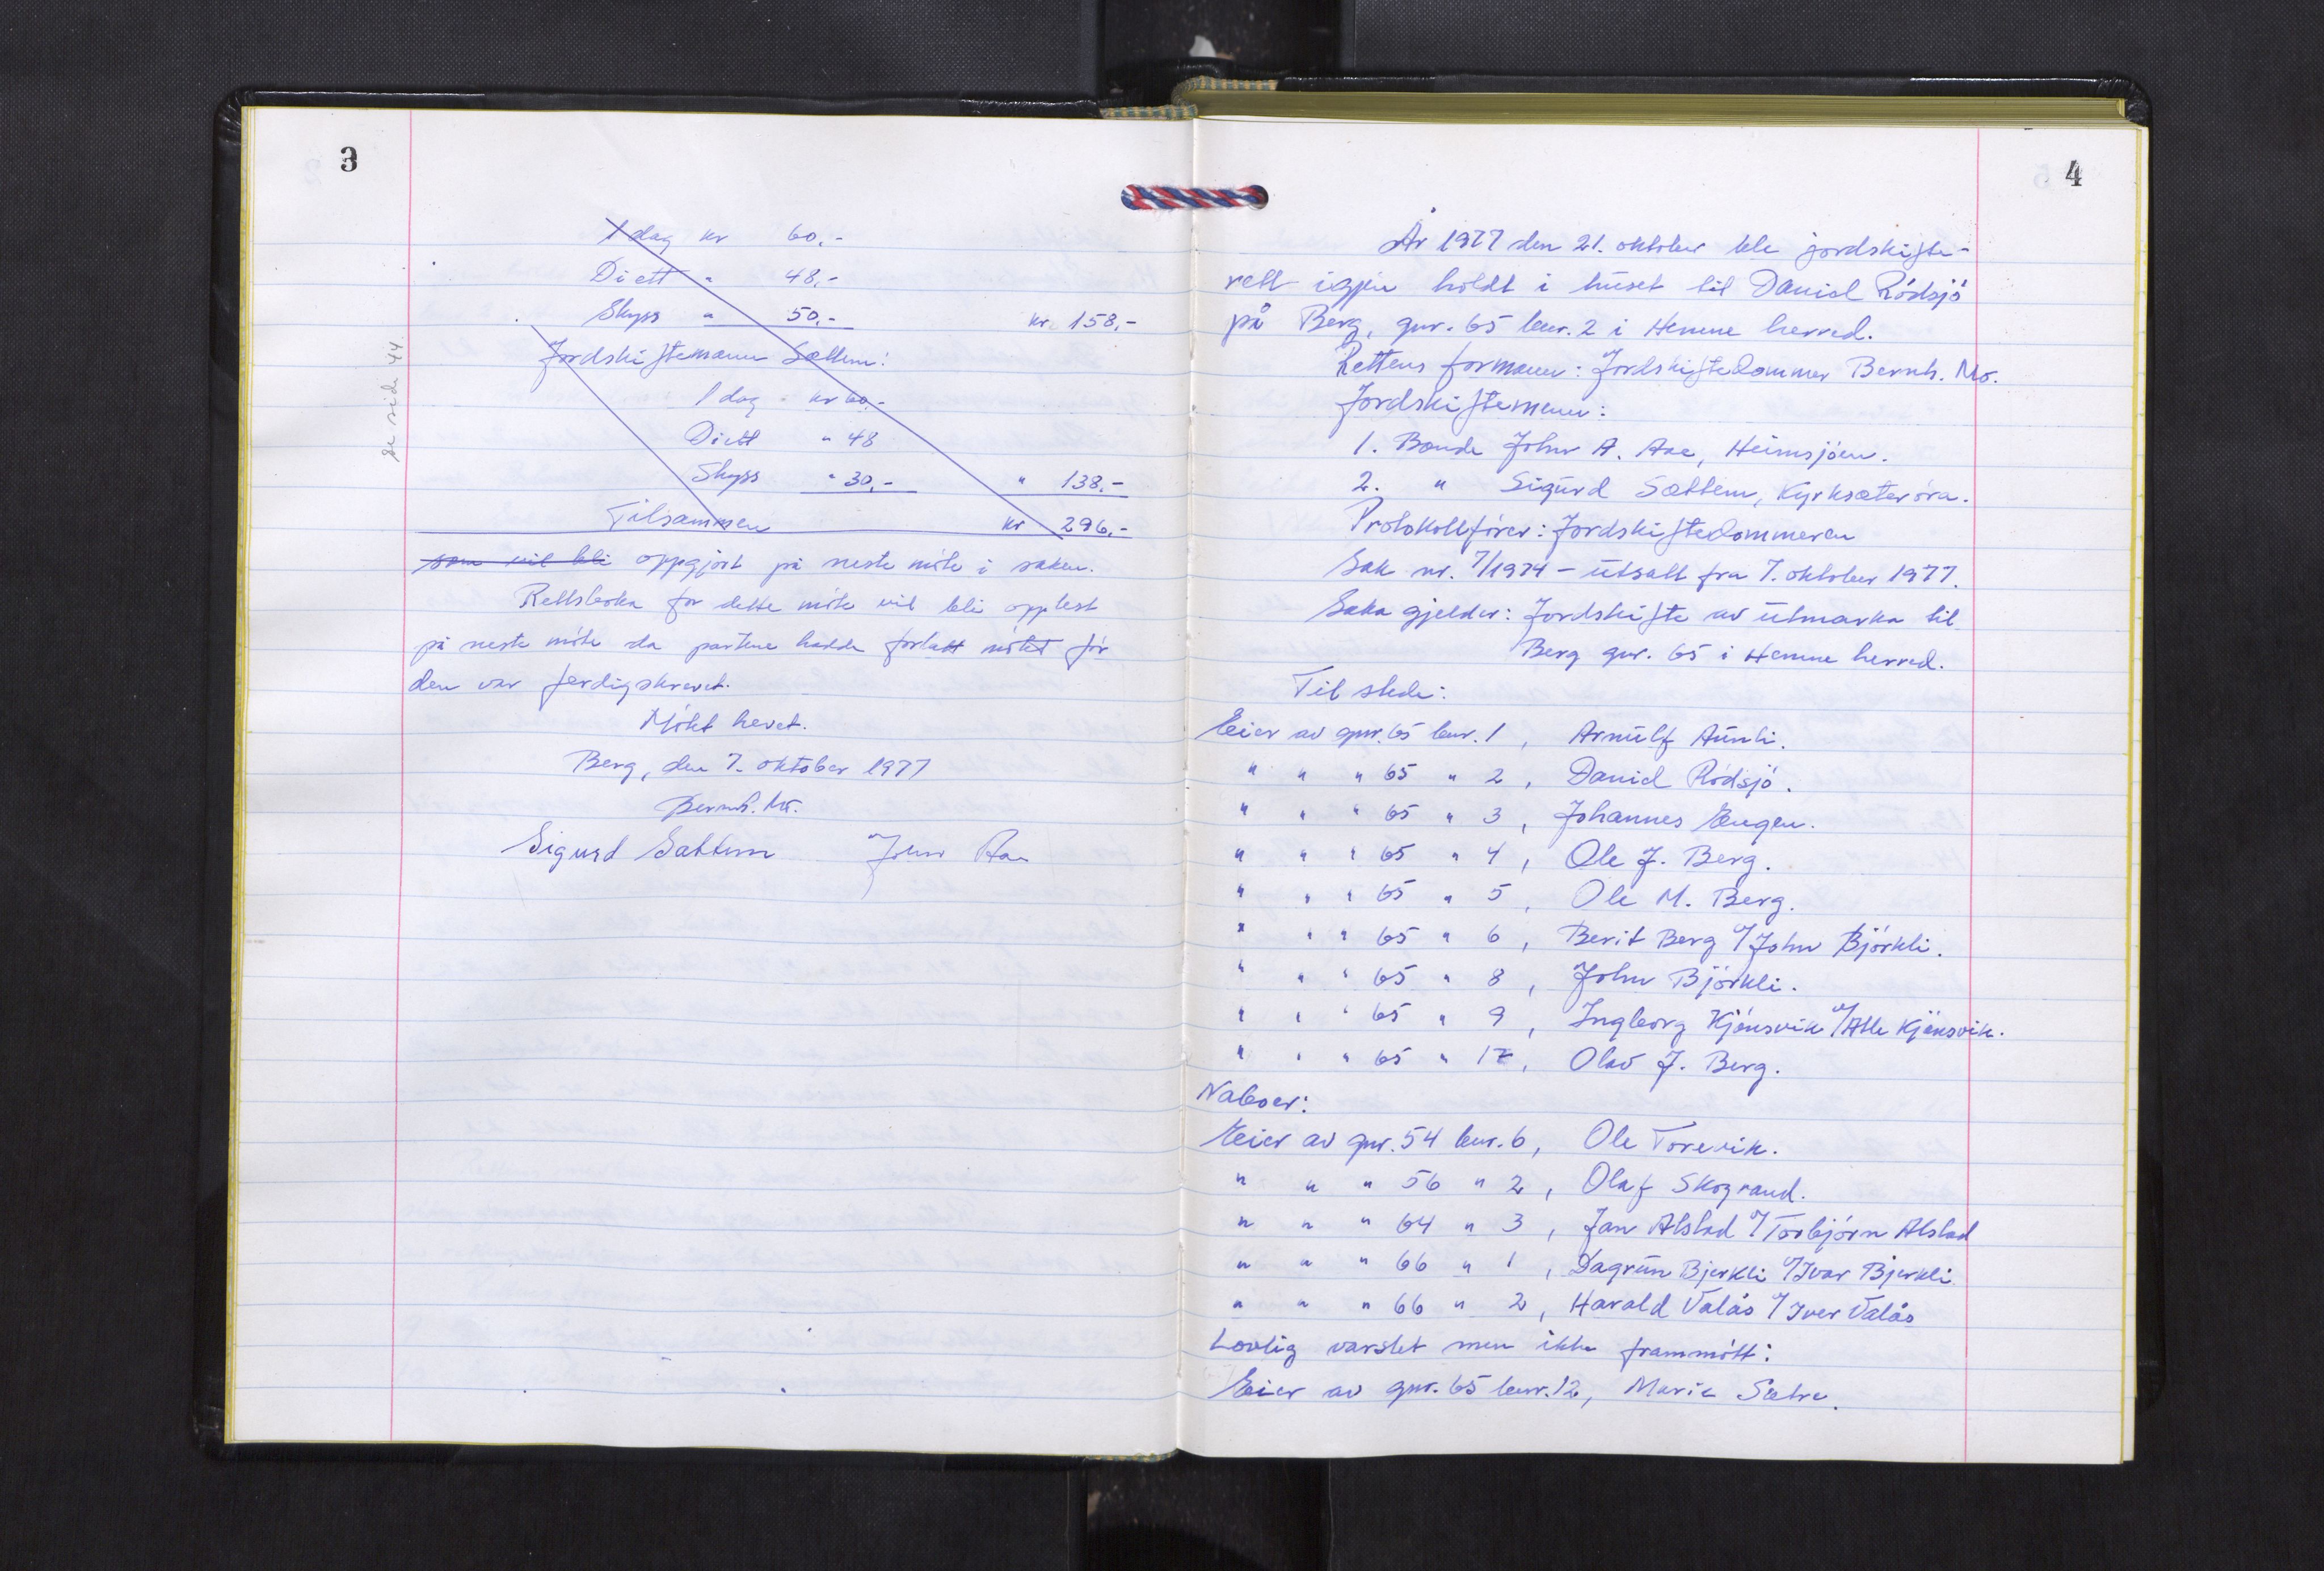 3
1 dag kr 60,-
Diett " 48,-
Skyss " 50,- kr. 158,-
Jordskiftemann Sættem:
1 dag kr 60,-
Diett " 48
Skyss " 30,- " 138,-
Tilsammen kr 296,-
som vil bli oppgjort på neste möte i saken.
Rettsboka for dette möte vil bli opplest
på neste möte da partene hadde forlatt mötet för
den var ferdigskrevet.
Mötet hevet.
Berg, den 7. oktober 1977
Bernh. Mo.
Sigurd Sættem John Aae
se side 44
4
År 1977 den 21. oktober ble jordskifte-
rett igjen holdt i huset til Daniel Rödsjö
på Berg, gnr. 65 bnr. 2 i Hemne herred.
Rettens formann: Jordskiftedommer Bernh. Mo.
Jordskiftemenn:
1. Bonde John A. Aae, Heimsjöen.
2. " Sigurd Sættem, Kyrksæteröra.
Protokollförer: Jordskiftedommeren
Sak nr. 7/1974 - utsatt fra 7. oktober 1977.
Saka gjelder: Jordskifte av utmarka til
Berg gnr. 65 i Hemne herred.
Til stede:
Eier av gnr. 65 bnr. 1, Arnulf Aunli.
" " " 65 " 2, Daniel Rödsjö.
" " " 65 " 3, Johannes Engen.
" " " 65 " 4, Ole J. Berg.
" " " 65 " 5, Ole M. Berg.
" " " 65 " 6, Berit Berg v/John Björkli.
" " " 65 " 8, John Björkli.
" " " 65 " 9, Ingborg Kjönsvik v/Atle Kjönsvik.
" " " 65 " 17, Olav J. Berg.
Naboer:
Eier av gnr. 54 bnr. 6, Ole Torevik.
" " " 56 " 2, Olaf Skogrand.
" " " 64 " 3, Jan Alstad v/Torbjörn Alstad
" " " 66 " 1, Dagrun Bjerkli v/Ivar Bjerkli
" " " 66 " 2, Harald Valås v/Iver Valås
Lovlig varslet men ikke frammött:
Eier av gnr. 65 bnr. 12, Marie Sætre.